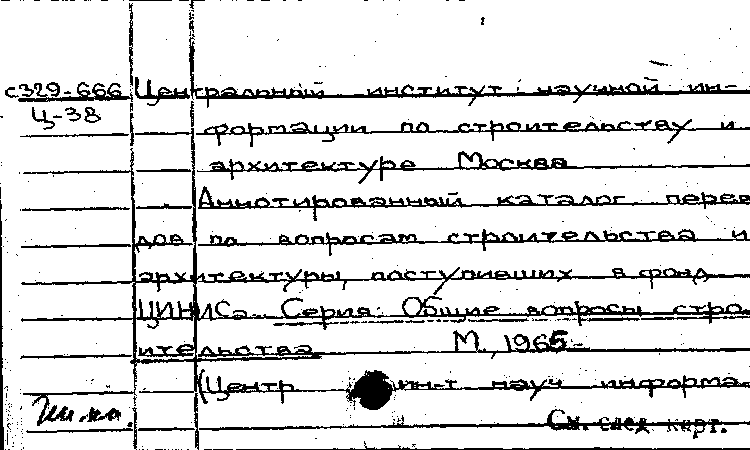 с329-666 Центральный институт научной ин-
Ц-38
формации по строительству и
архитектуре Москва
Аннотированный каталог перев
дов по вопросам строительства и
архитектуры, поступивших в фонд
ЦИНИСа. Серия: Общие вопросы стро
ительства М., 1965-
(Центр ин-т науч информа
См. след карт.